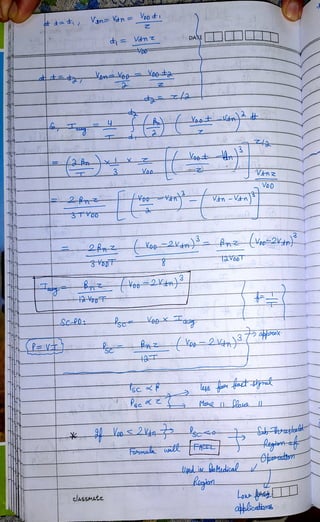 at t=t₁, V₀ₙ=Vₜₙ = V_DD t₁ / τ
t₁ = Vₜₙ τ / V_DD
DATE
at t=t₂, V₀ₙ = V_DD / 2 = V_DD t₂ / τ
t₂ = τ/2
I_avg = 4/T ∫_{t₁}^{t₂} (βₙ/2) (V_DD t / τ - Vₜₙ)² dt
= (2βₙ / T) × 1/3 × τ / V_DD [(V_DD t / τ - Vₜₙ)³]_{Vₜₙ τ / V_DD}^{τ/2}
= 2βₙ τ / 3T V_DD [(V_DD / 2 - Vₜₙ)³ - (Vₜₙ - Vₜₙ)³]
= 2βₙ τ / 3 V_DD T (V_DD - 2Vₜₙ)³ / 8 = βₙ τ / 12 V_DD T (V_DD - 2Vₜₙ)³
I_avg = βₙ τ / 12 V_DD T (V_DD - 2Vₜₙ)³
{ f = 1/T }
SC-PD: P_SC = V_DD × I_avg
(P = VI) P_SC = βₙ τ / 12T (V_DD - 2Vₜₙ)³ } → approx
P_SC ∝ β
P_SC ∝ τ } → less for fast signal
→ More " slow "
* If V_DD < 2Vₜₙ } → P_SC < 0
Formula will FAIL
} → Sub-Threshold
Region of
Operation
Used in BioMedical
Region
Low freq
applications
classmate